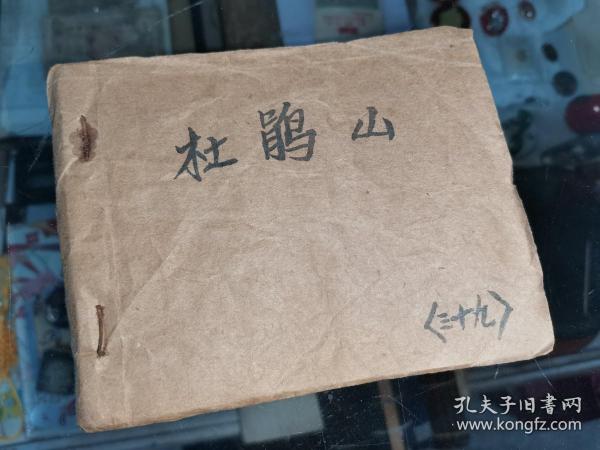 杜鹃山
〈三十九〉
孔夫子旧書网
www.kongfz.com